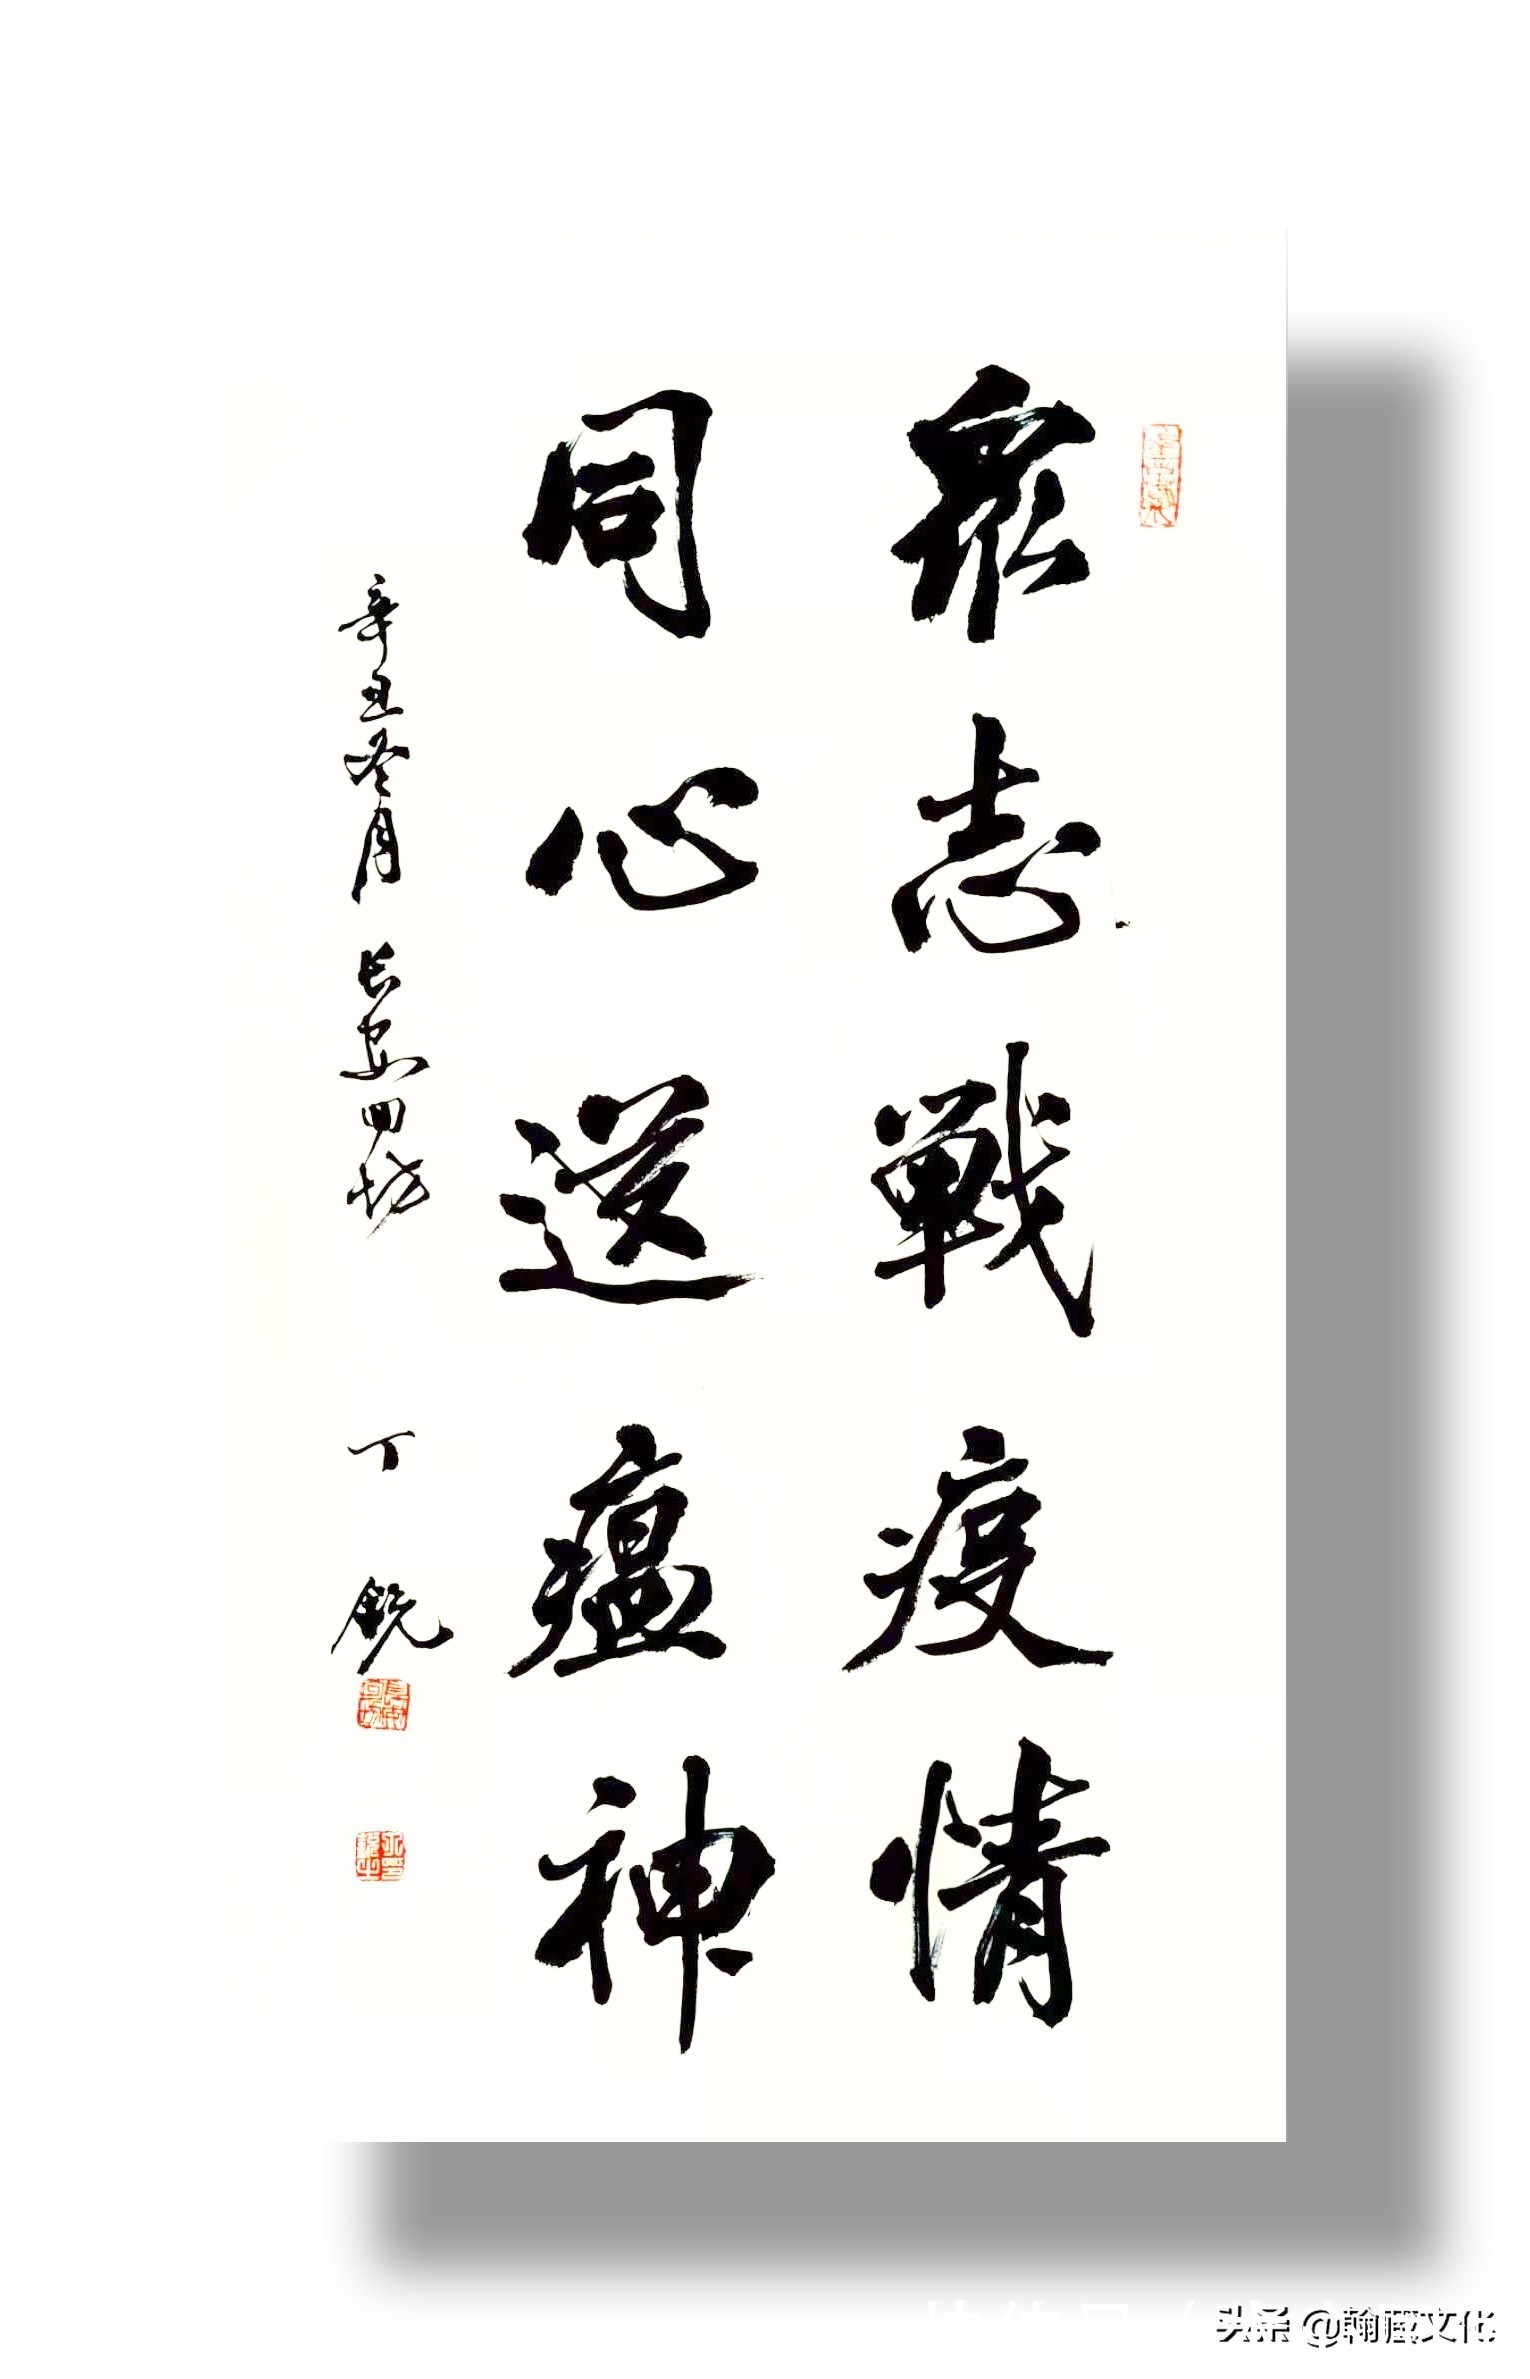 衆志戰疫情
同心送瘟神
辛丑冬月 長安回坊 丁銳
头条 @翰墨文化